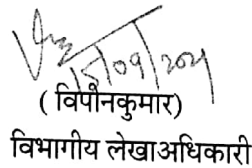 15/09/2021
( विपीनकुमार)
विभागीय लेखाअधिकारी